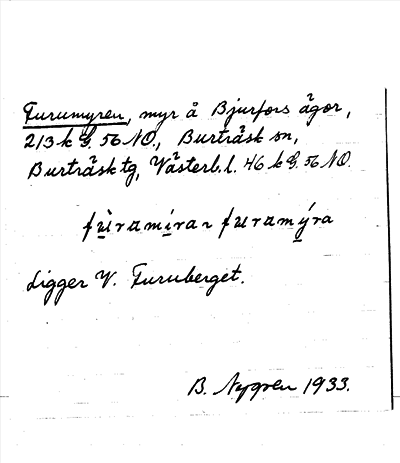 Furumyren, myr å Bjurfors ägor,
213 k G. 56 NO., Burträsk sn,
Burträsk tg, Västerb. l. 46 k G. 56 NO.
fùramiran furamýra
Ligger V. Furuberget.
B. Nygren 1933.